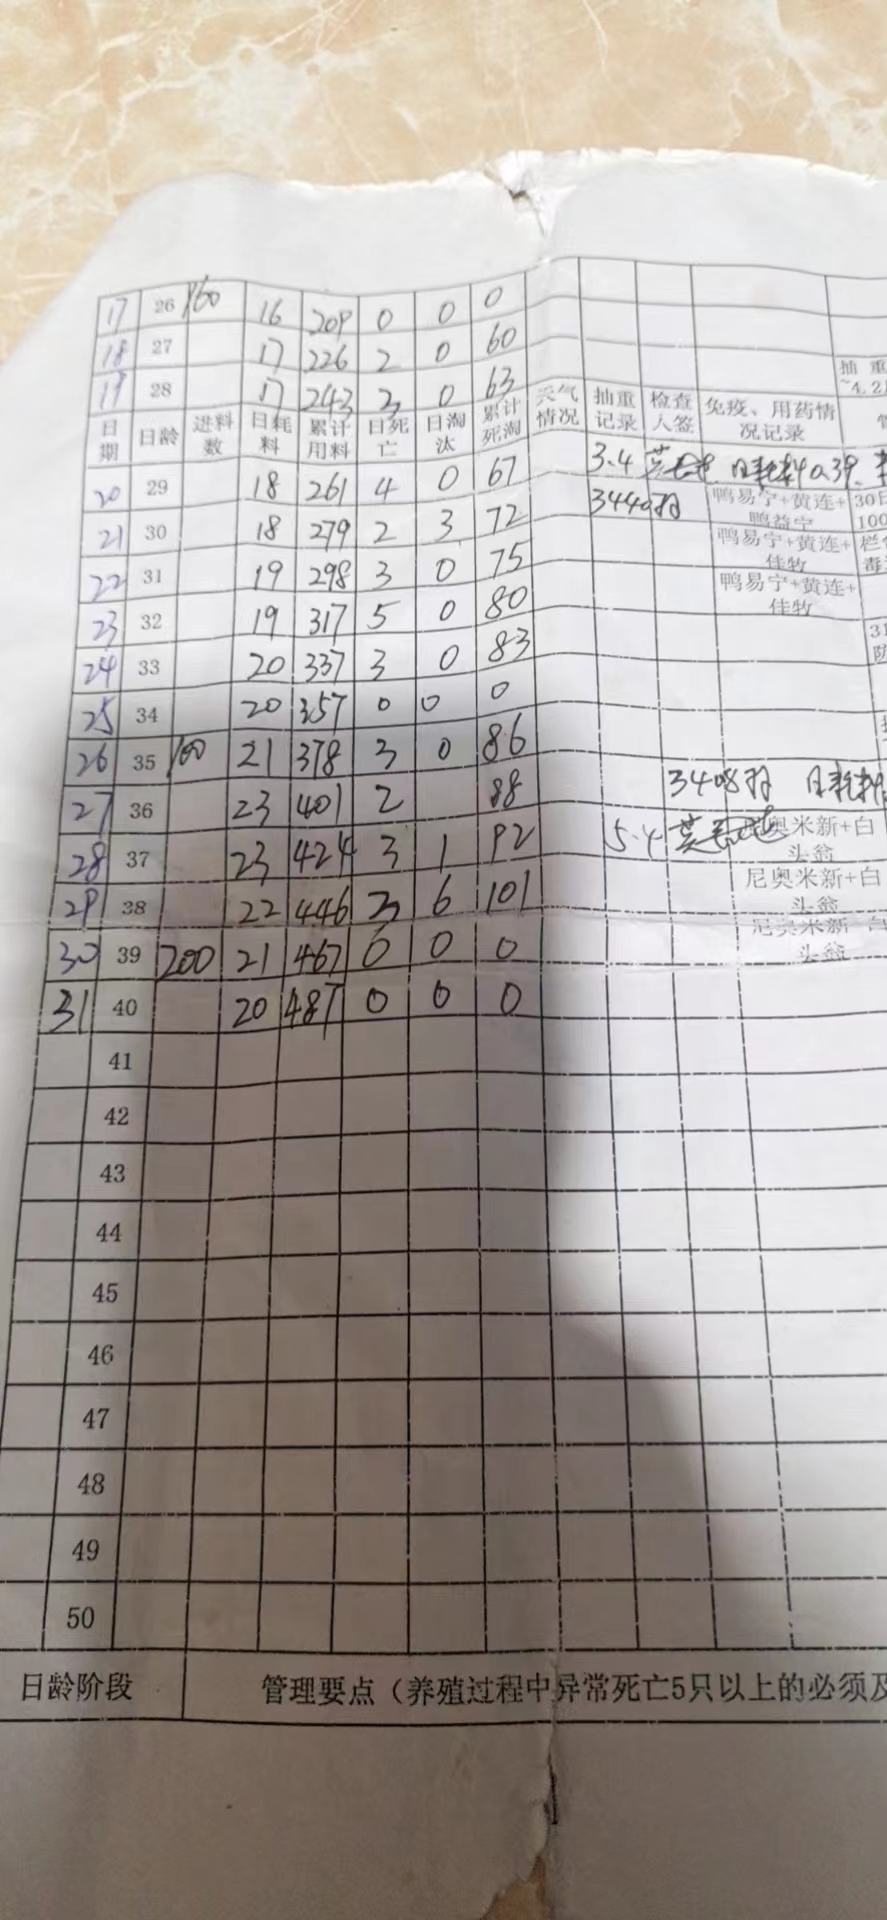 17 26 160 16 209 0 0 0
18 27 17 226 2 0 60
19 28 17 243 3 0 63 抽重
~4.2
日期 日龄 进料数 日耗料 累计用料 日死亡 日淘汰 累计死淘 天气情况 抽重记录 检查人签 免疫、用药情况记录
20 29 18 261 4 0 67 3.4 日耗料 0.39
21 30 18 279 2 3 72 3440羽 鸭易宁+黄连+鸭益宁 30日
100
22 31 19 298 3 0 75 鸭易宁+黄连+佳牧
23 32 19 317 5 0 80 鸭易宁+黄连+佳牧
24 33 20 337 3 0 83
25 34 20 357 0 0 0
26 35 160 21 378 3 0 86
27 36 23 401 2 88 3408羽 日耗料
28 37 23 424 3 1 92 5.4 尼奥米新+白头翁
29 38 22 446 3 6 101 尼奥米新+白头翁
30 39 200 21 467 0 0 0 尼奥米新 白头翁
31 40 20 487 0 0 0
41
42
43
44
45
46
47
48
49
50
日龄阶段 管理要点（养殖过程中异常死亡5只以上的必须及